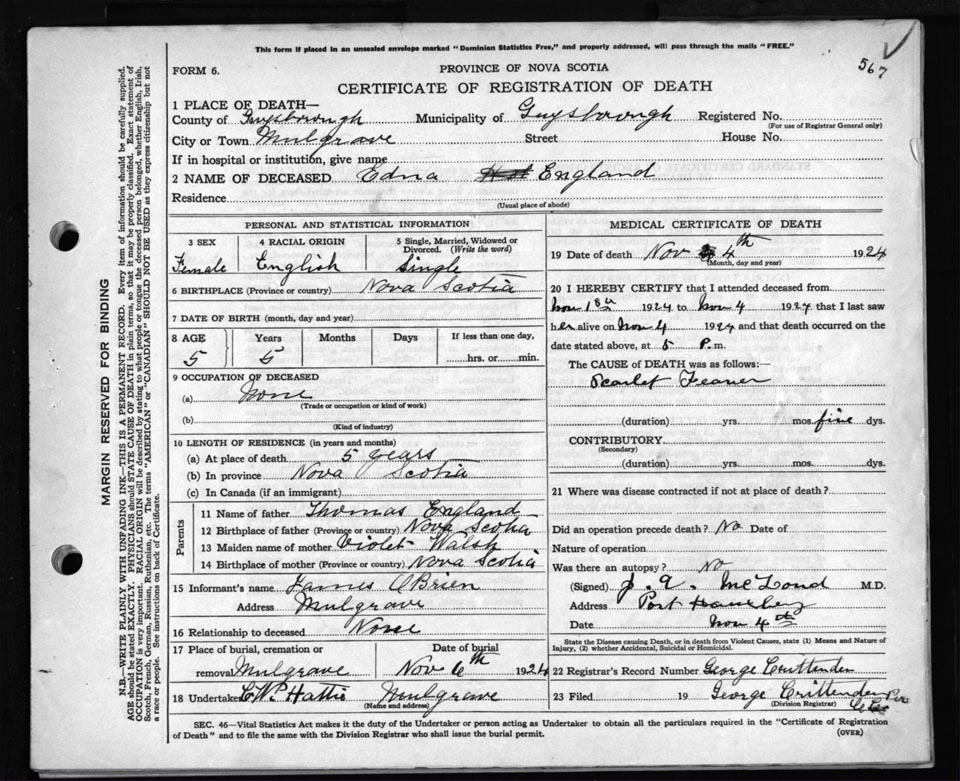 This form if placed in an unsealed envelope marked "Dominion Statistics Free," and properly addressed, will pass through the mails "FREE."
567
FORM 6.
PROVINCE OF NOVA SCOTIA
CERTIFICATE OF REGISTRATION OF DEATH
1 PLACE OF DEATH—
County of Guysborough Municipality of Guysborough Registered No.
(For use of Registrar General only)
City or Town Mulgrave Street House No.
If in hospital or institution, give name
2 NAME OF DECEASED Edna England
Residence
(Usual place of abode)
PERSONAL AND STATISTICAL INFORMATION
3 SEX 4 RACIAL ORIGIN 5 Single, Married, Widowed or Divorced. (Write the word)
Female English Single
6 BIRTHPLACE (Province or country) Nova Scotia
7 DATE OF BIRTH (month, day and year)
8 AGE Years Months Days If less than one day,
5 5 hrs. or min.
9 OCCUPATION OF DECEASED
(a) None
(Trade or occupation or kind of work)
(b)
(Kind of industry)
10 LENGTH OF RESIDENCE (in years and months)
(a) At place of death 5 years
(b) In province Nova Scotia
(c) In Canada (if an immigrant)
Parents
11 Name of father Thomas England
12 Birthplace of father (Province or country) Nova Scotia
13 Maiden name of mother Violet Walsh
14 Birthplace of mother (Province or country) Nova Scotia
15 Informant's name James O'Brien
Address Mulgrave
16 Relationship to deceased None
17 Place of burial, cremation or removal Mulgrave Date of burial Nov 6th 1924
18 Undertaker C.W. Hattie Mulgrave
(Name and address)
MEDICAL CERTIFICATE OF DEATH
19 Date of death Nov 4th 1924
(Month, day and year)
20 I HEREBY CERTIFY that I attended deceased from
Nov 1st 1924 to Nov 4 1924 that I last saw
her alive on Nov 4 1924 and that death occurred on the
date stated above, at 5 P.m.
The CAUSE of DEATH was as follows:—
Scarlet Feaver
(duration) yrs. mos. five dys.
CONTRIBUTORY
(Secondary)
(duration) yrs. mos. dys.
21 Where was disease contracted if not at place of death?
Did an operation precede death? No Date of
Nature of operation
Was there an autopsy? No
(Signed) J. A. M.D.
Address Port
Date Nov 4th
State the Disease causing Death, or in death from Violent Causes, state (1) Means and Nature of Injury, (2) whether Accidental, Suicidal or Homicidal.
22 Registrar's Record Number George Cruttenden
23 Filed 19 George Crittenden Per
(Division Registrar)
SEC. 46—Vital Statistics Act makes it the duty of the Undertaker or person acting as Undertaker to obtain all the particulars required in the "Certificate of Registration
of Death" and to file the same with the Division Registrar who shall issue the burial permit.
(OVER)
MARGIN RESERVED FOR BINDING
N.B.—WRITE PLAINLY WITH UNFADING INK—THIS IS A PERMANENT RECORD. Every item of information should be carefully supplied.
AGE should be stated EXACTLY. PHYSICIANS should STATE CAUSE OF DEATH in plain terms, so that it may be properly classified. Exact statement of
OCCUPATION is very important. RACIAL ORIGIN will be described by stating to what people or tongue the deceased person belonged, whether English, Irish,
Scotch, French, German, Russian, Ruthenian, etc. The terms "AMERICAN" or "CANADIAN" SHOULD NOT BE USED as they express citizenship but not
a race or people. See instructions on back of Certificate.